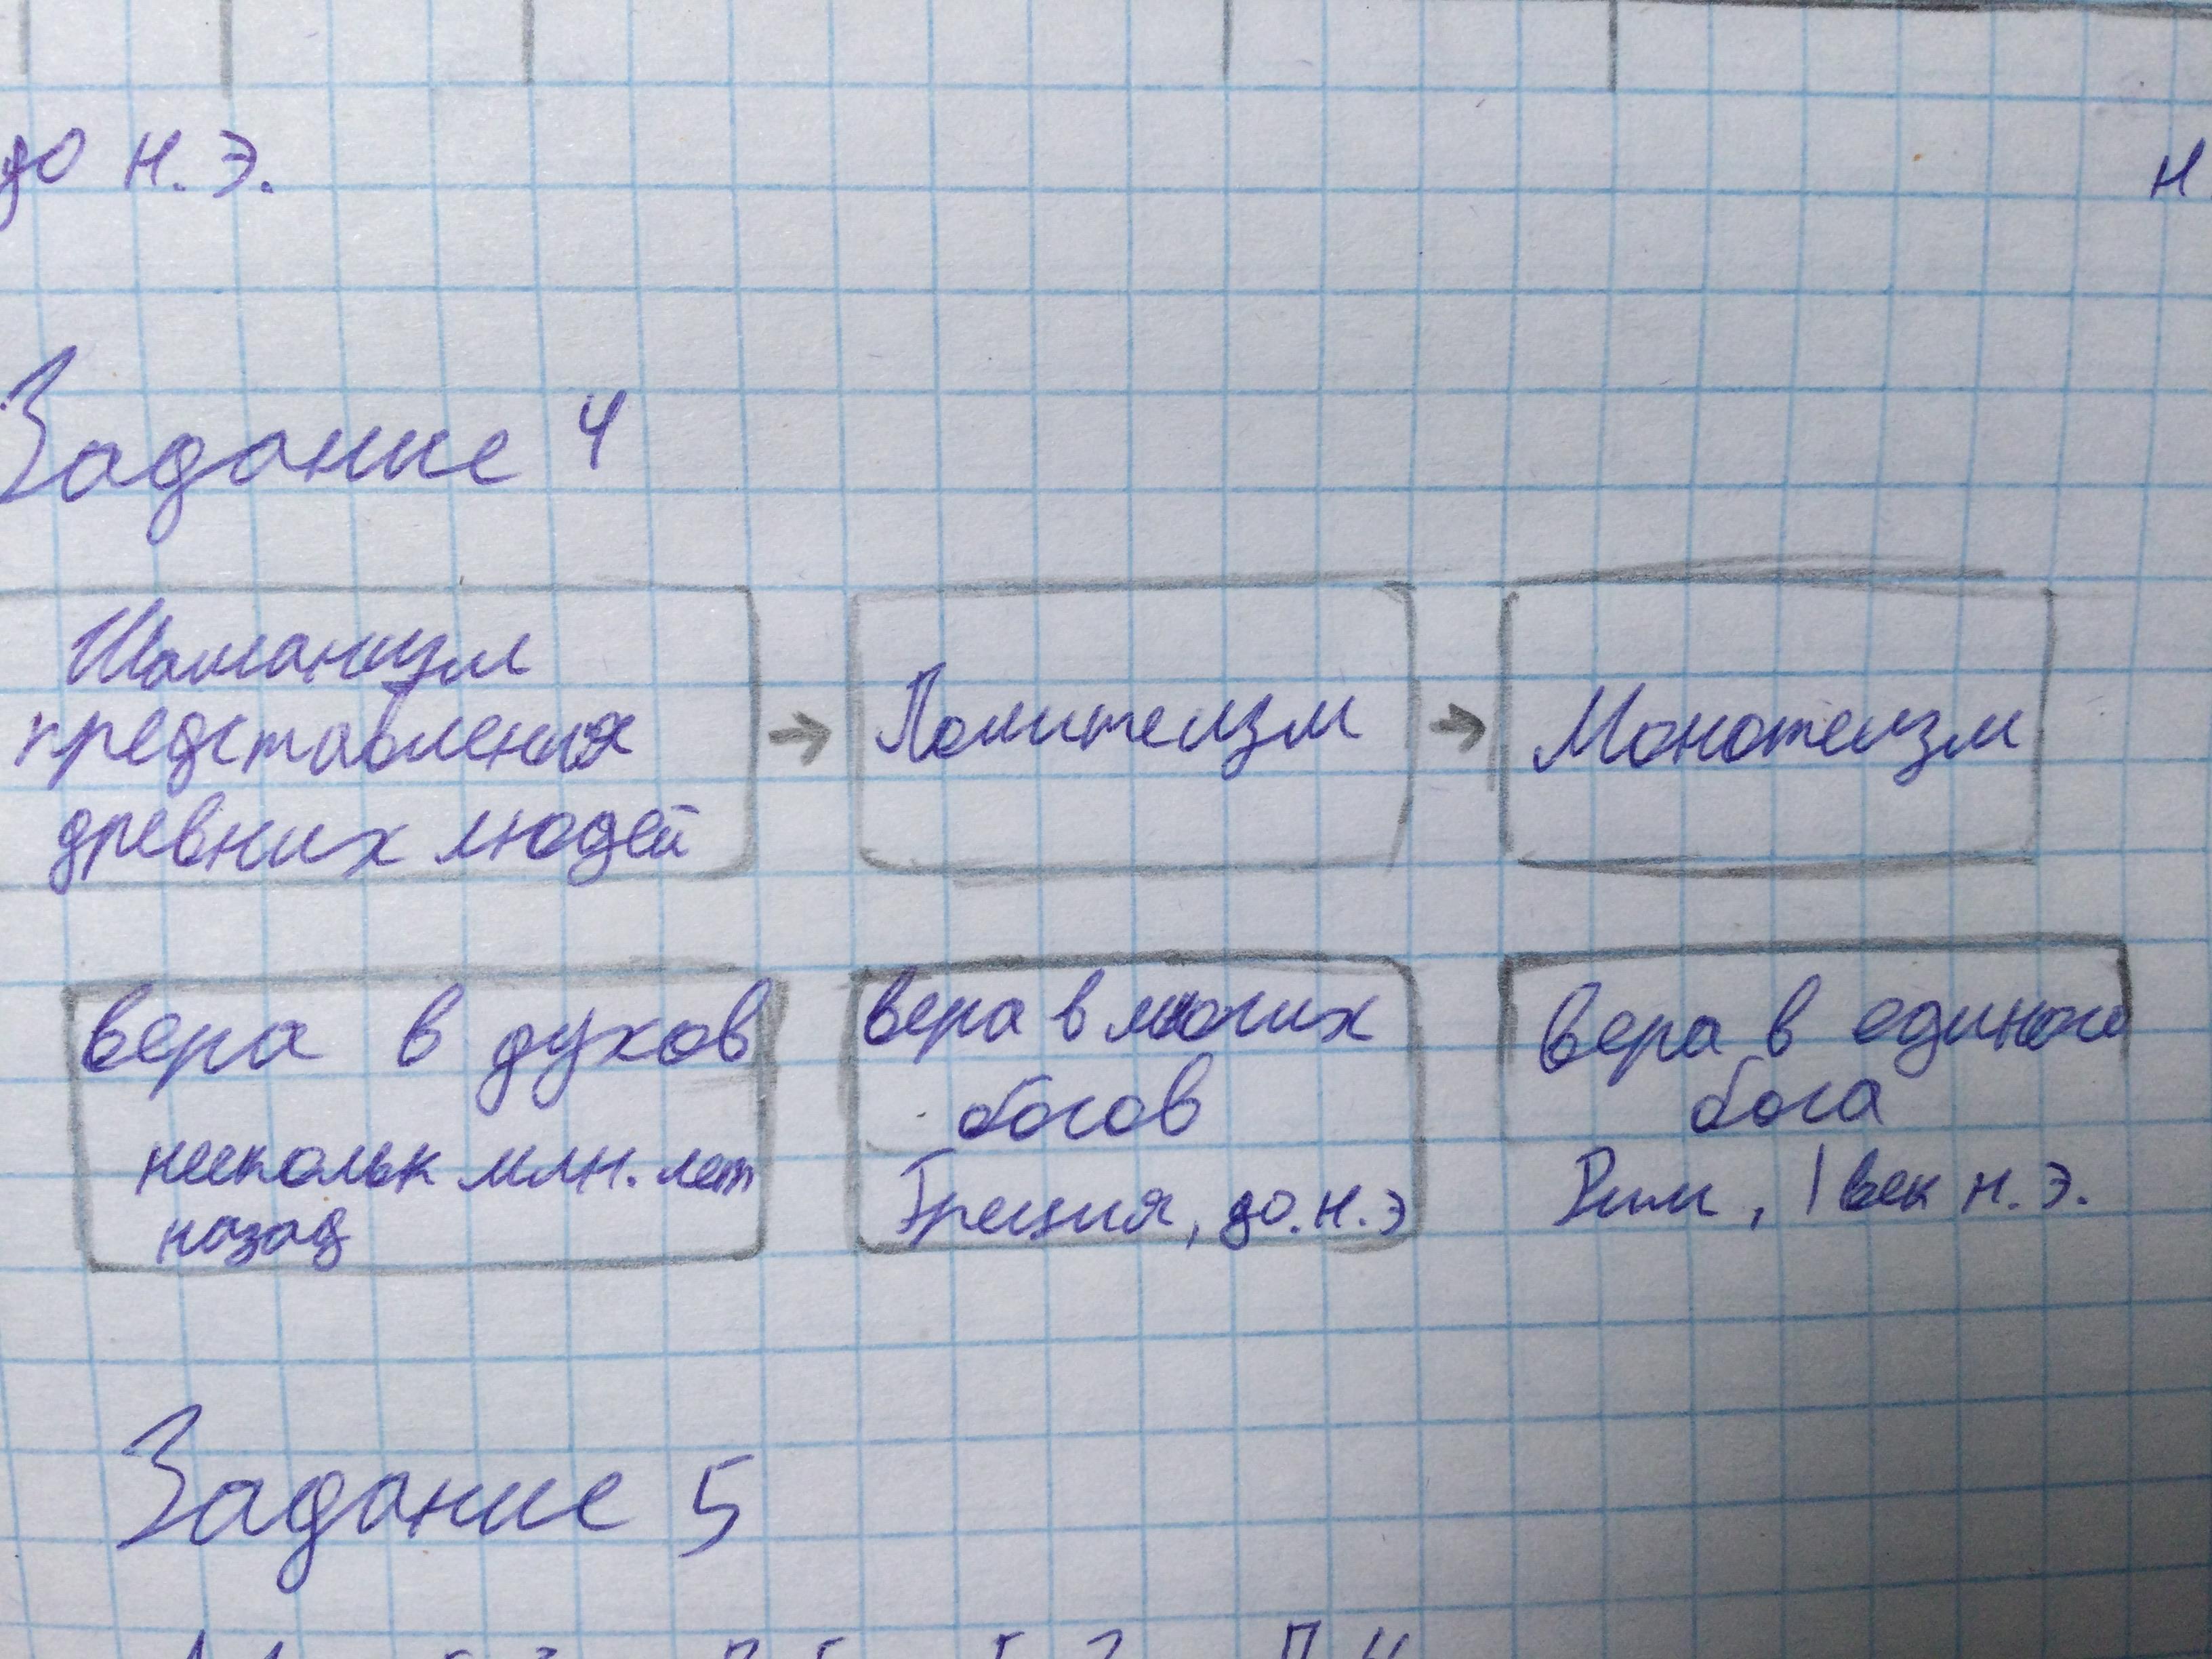 до н.э.
н
Задание 4
Шаманизм
представления
древних людей
→ Политеизм → Монотеизм
вера в духов
нескольк млн. лет
назад
вера в многих
богов
Греция, до.н.э
вера в единого
бога
Рим, I век н.э.
Задание 5